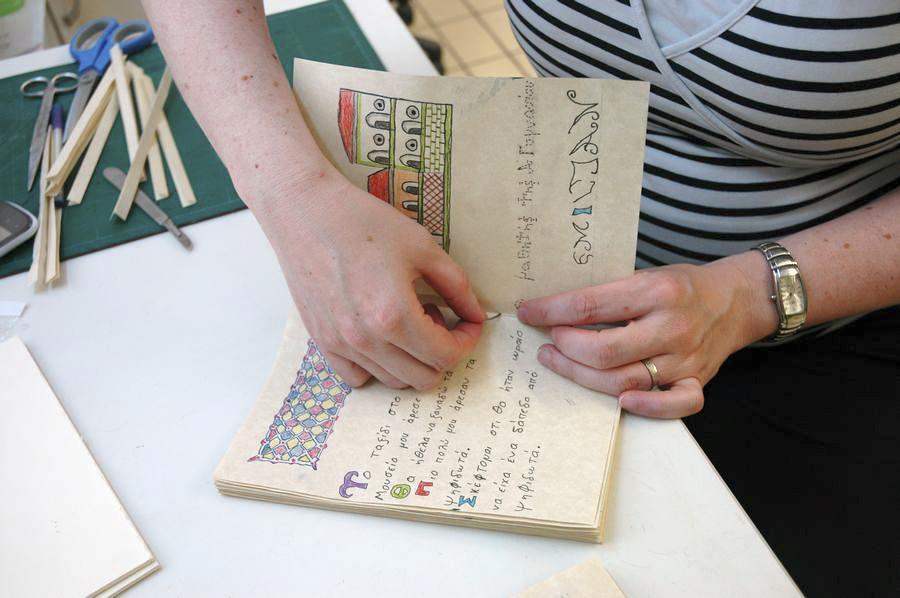 μαθητής της Α Γυμνασίου
Το ταξίδι στο
Μουσείο μου άρεσε
Θα ήθελα να ξαναδώ τα
Πιο πολύ μου άρεσαν τα
ψηφιδωτά.
Σκέφτομαι οτι θα ήταν ωραίο
να είχα ένα δάπεδο από
ψηφιδωτά.